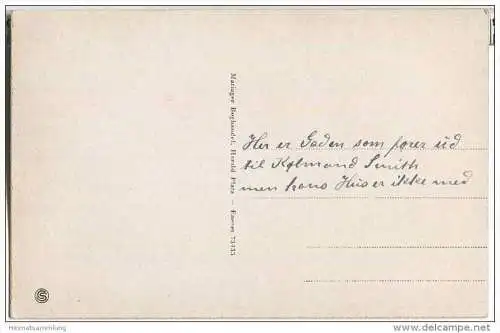 Her er Gaden som fører ud
til Købmand Smith
men hans Hus er ikke med
Mariager Boghandel. Harald Platz — Eneret 73435
S
Heimatsammlung
delcampe.net